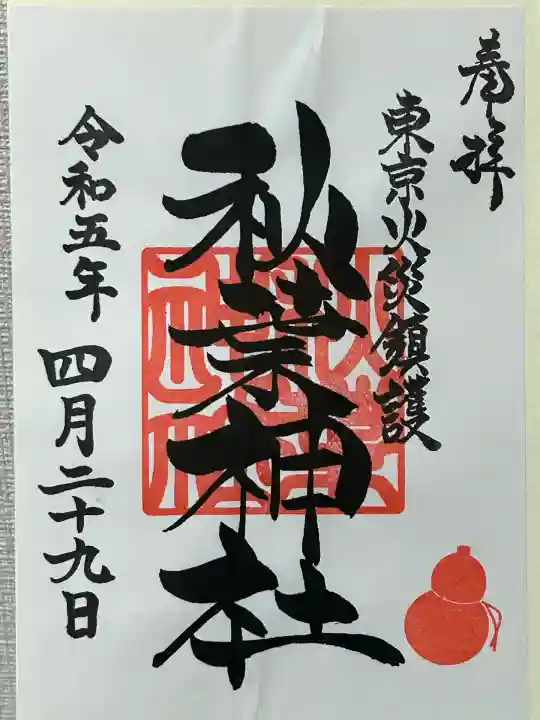 奉拝
東京火災鎮護
秋葉神社
令和五年
四月二十九日